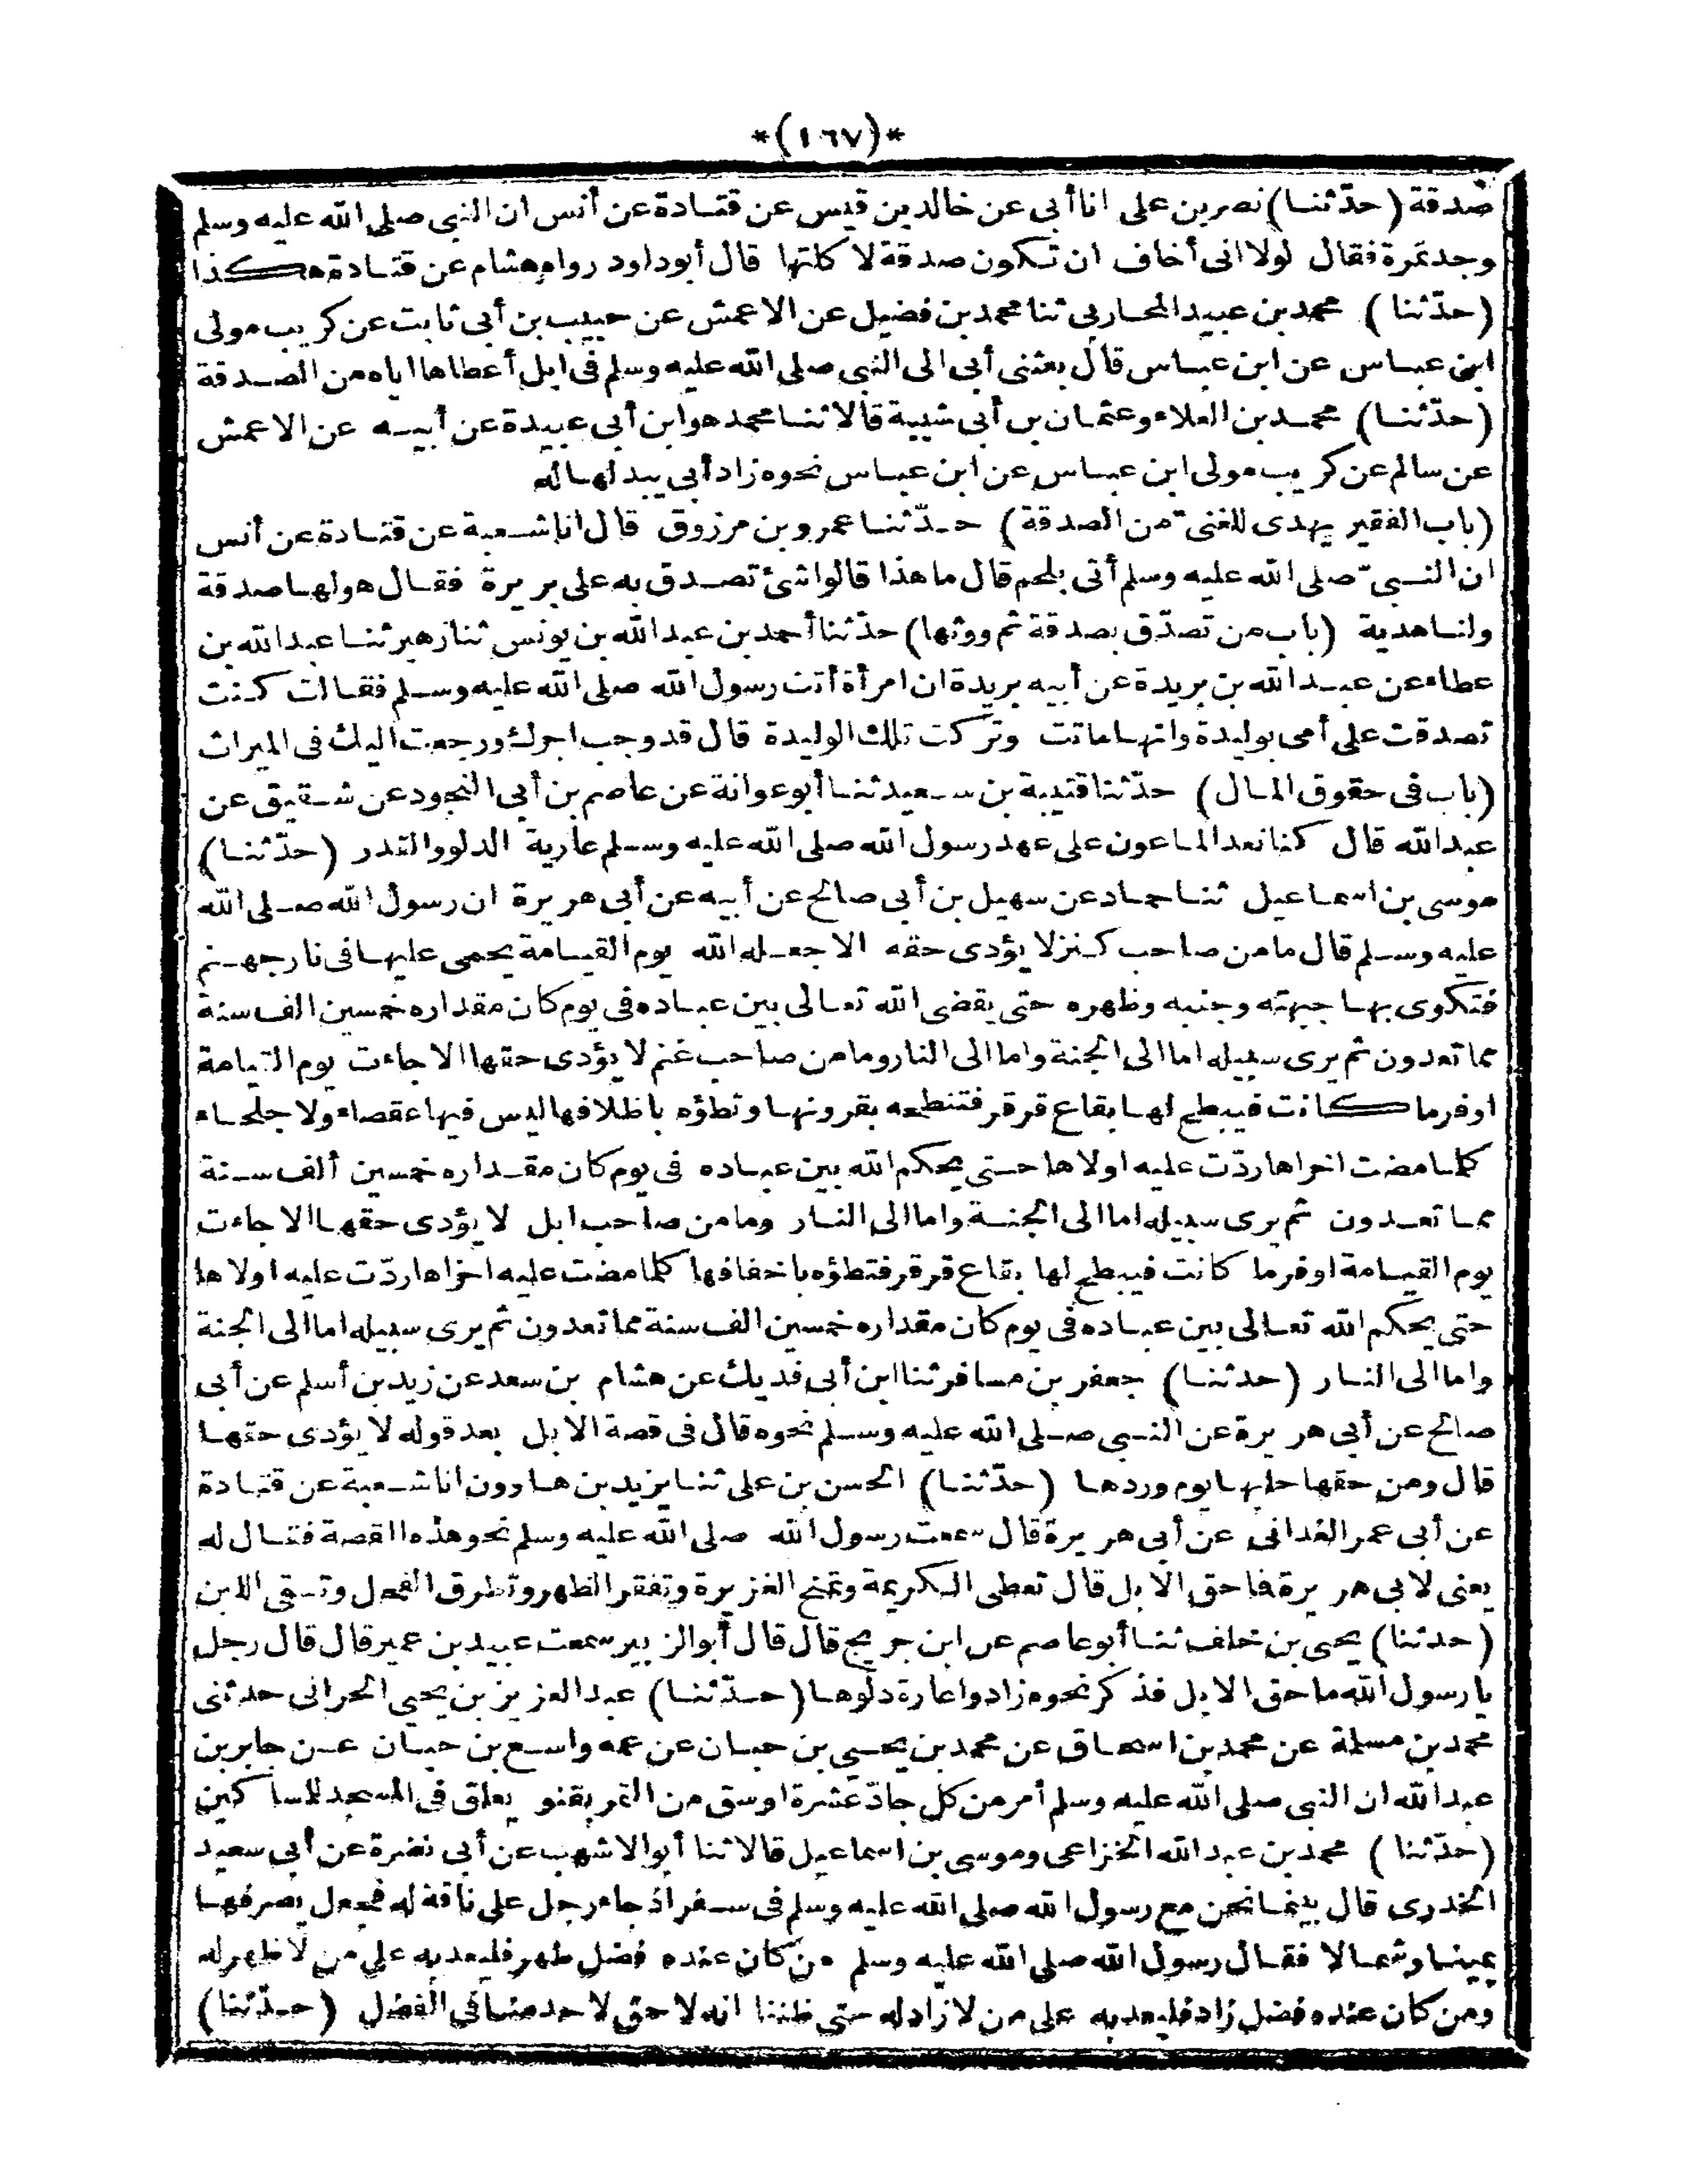 *(١٦٧)*
صدقة (حدّثنا) نصر بن على انا أبى عن خالد بن قيس عن قتادة عن أنس ان النبى صلى الله عليه وسلم
وجد تمرة فقال لولا انى أخاف ان تكون صدقة لا كلتها قال أبو داود رواه هشام عن قتادة هكذا
(حدّثنا) محمد بن عبيد المحاربى ثنا محمد بن فضيل عن الاعمش عن حبيب بن أبى ثابت عن كريب مولى
ابن عباس عن ابن عباس قال بعثنى أبى الى النبى صلى الله عليه وسلم فى ابل أعطاها اياه من الصدقة
(حدّثنا) محمد بن العلاء وعثمان بن أبى شيبة قالا ثنا محمد هو ابن أبى عبيدة عن أبيه عن الاعمش
عن سالم عن كريب مولى ابن عباس عن ابن عباس نحوه زاد أبى يبدلها له
(باب الفقير يهدى للغنىّ من الصدقة) حدّثنا عمرو بن مرزوق قال انا شعبة عن قتادة عن أنس
ان النبىّ صلى الله عليه وسلم أتى بلحم قال ما هذا قالوا شئ تصدق به على بريرة فقال هو لها صدقة
ولنا هدية (باب من تصدّق بصدقة ثم ورثها) حدّثنا أحمد بن عبد الله بن يونس ثنا زهير ثنا عبد الله بن
عطاء عن عبد الله بن بريدة عن أبيه بريدة ان امرأة أتت رسول الله صلى الله عليه وسلم فقالت كنت
تصدقت على أمى بوليدة وانها ماتت وتركت تلك الوليدة قال قد وجب اجرك ورجعت اليك فى الميراث
(باب فى حقوق المال) حدّثنا قتيبة بن سعيد ثنا أبو عوانة عن عاصم بن أبى النجود عن شقيق عن
عبد الله قال كنا نعد الماعون على عهد رسول الله صلى الله عليه وسلم عارية الدلو والقدر (حدّثنا)
موسى بن اسماعيل ثنا حماد عن سهيل بن أبى صالح عن أبيه عن أبى هريرة ان رسول الله صلى الله
عليه وسلم قال ما من صاحب كنز لا يؤدى حقه الا جعله الله يوم القيامة يحمى عليها فى نار جهنم
فتكوى بها جبهته وجنبه وظهره حتى يقضى الله تعالى بين عباده فى يوم كان مقداره خمسين الف سنة
مما تعدون ثم يرى سبيله اما الى الجنة واما الى النار وما من صاحب غنم لا يؤدى حقها الا جاءت يوم القيامة
اوفر ما كانت فيبطح لها بقاع قرقر فتنطحه بقرونها وتطؤه باظلافها ليس فيها عقصاء ولا جلحاء
كلما مضت اخراها ردّت عليه اولاها حتى يحكم الله بين عباده فى يوم كان مقداره خمسين ألف سنة
مما تعدون ثم يرى سبيله اما الى الجنة واما الى النار وما من صاحب ابل لا يؤدى حقها الا جاءت
يوم القيامة اوفر ما كانت فيبطح لها بقاع قرقر فتطؤه باخفافها كلما مضت عليه اخراها ردّت عليه اولاها
حتى يحكم الله تعالى بين عباده فى يوم كان مقداره خمسين الف سنة مما تعدون ثم يرى سبيله اما الى الجنة
واما الى النار (حدثنا) جعفر بن مسافر ثنا ابن أبى فديك عن هشام بن سعد عن زيد بن أسلم عن أبى
صالح عن أبى هريرة عن النبى صلى الله عليه وسلم نحوه قال فى قصة الابل بعد قوله لا يؤدى حقها
قال ومن حقها حلبها يوم وردها (حدّثنا) الحسن بن على ثنا يزيد بن هارون انا شعبة عن قتادة
عن أبى عمر الغدانى عن أبى هريرة قال سمعت رسول الله صلى الله عليه وسلم نحو هذه القصة فقال له
يعنى لابى هريرة فما حق الابل قال تعطى الكريمة وتمنح الغزيرة وتفقر الظهر وتطرق الفحل وتسقى اللبن
(حدثنا) يحيى بن خلف ثنا أبو عاصم عن ابن جريج قال قال أبو الزبير سمعت عبيد بن عمير قال قال رجل
يا رسول الله ما حق الابل فذكر نحوه زاد واعارة دلوها (حدّثنا) عبد العزيز بن يحيى الحرانى حدثنى
محمد بن مسلمة عن محمد بن اسحاق عن محمد بن يحيى بن حبان عن عمه واسع بن حبان عن جابر بن
عبد الله ان النبى صلى الله عليه وسلم أمر من كل جادّ عشرة اوسق من التمر بقنو يعلق فى المسجد للمساكين
(حدّثنا) محمد بن عبد الله الخزاعى وموسى بن اسماعيل قالا ثنا أبو الاشهب عن أبى نضرة عن أبى سعيد
الخدرى قال بينما نحن مع رسول الله صلى الله عليه وسلم فى سفر اذ جاء رجل على ناقة له فجعل يصرفها
يمينا وشمالا فقال رسول الله صلى الله عليه وسلم من كان عنده فضل ظهر فليعد به على من لا ظهر له
ومن كان عنده فضل زاد فليعد به على من لا زاد له حتى ظننا انه لا حق لاحد منا فى الفضل (حدّثنا)